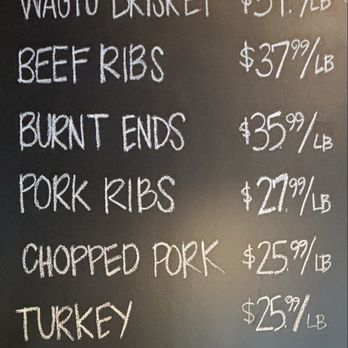 WAGYU BRISKET /LB
BEEF RIBS $37.99/LB
BURNT ENDS $35.99/LB
PORK RIBS $27.99/LB
CHOPPED PORK $25.99/LB
TURKEY $25.99/LB